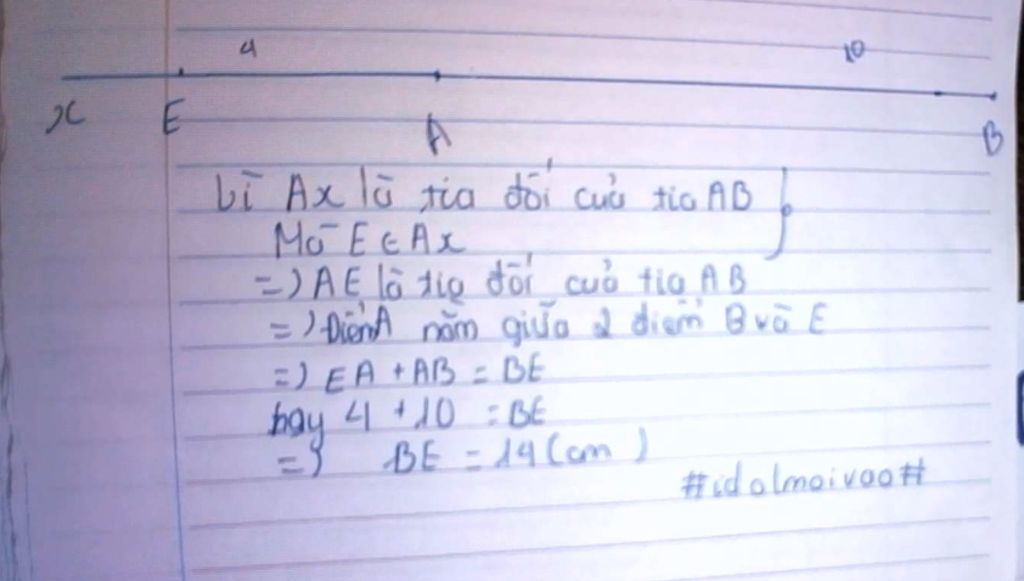 4 10
x E A B
Vì Ax là tia đối của tia AB
Mà E ∈ Ax
=) AE là tia đối của tia AB
=) Điểm A nằm giữa 2 điểm B và E
=) EA + AB = BE
hay 4 + 10 = BE
=) BE = 14 (cm)
#idolmoivao#